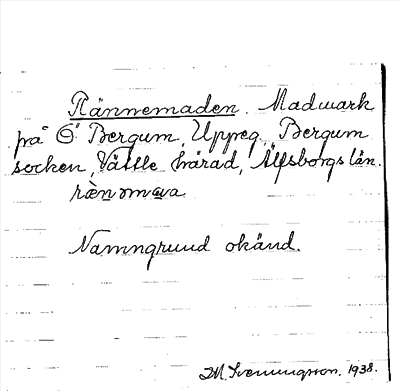 Rännemaden. Madmark
på Ö Bergum, Uppreg. Bergum
socken, Vättle härad, Älfsborgs län.
rènomava
Namngrund okänd.
J M. Svenningsson. 1938.